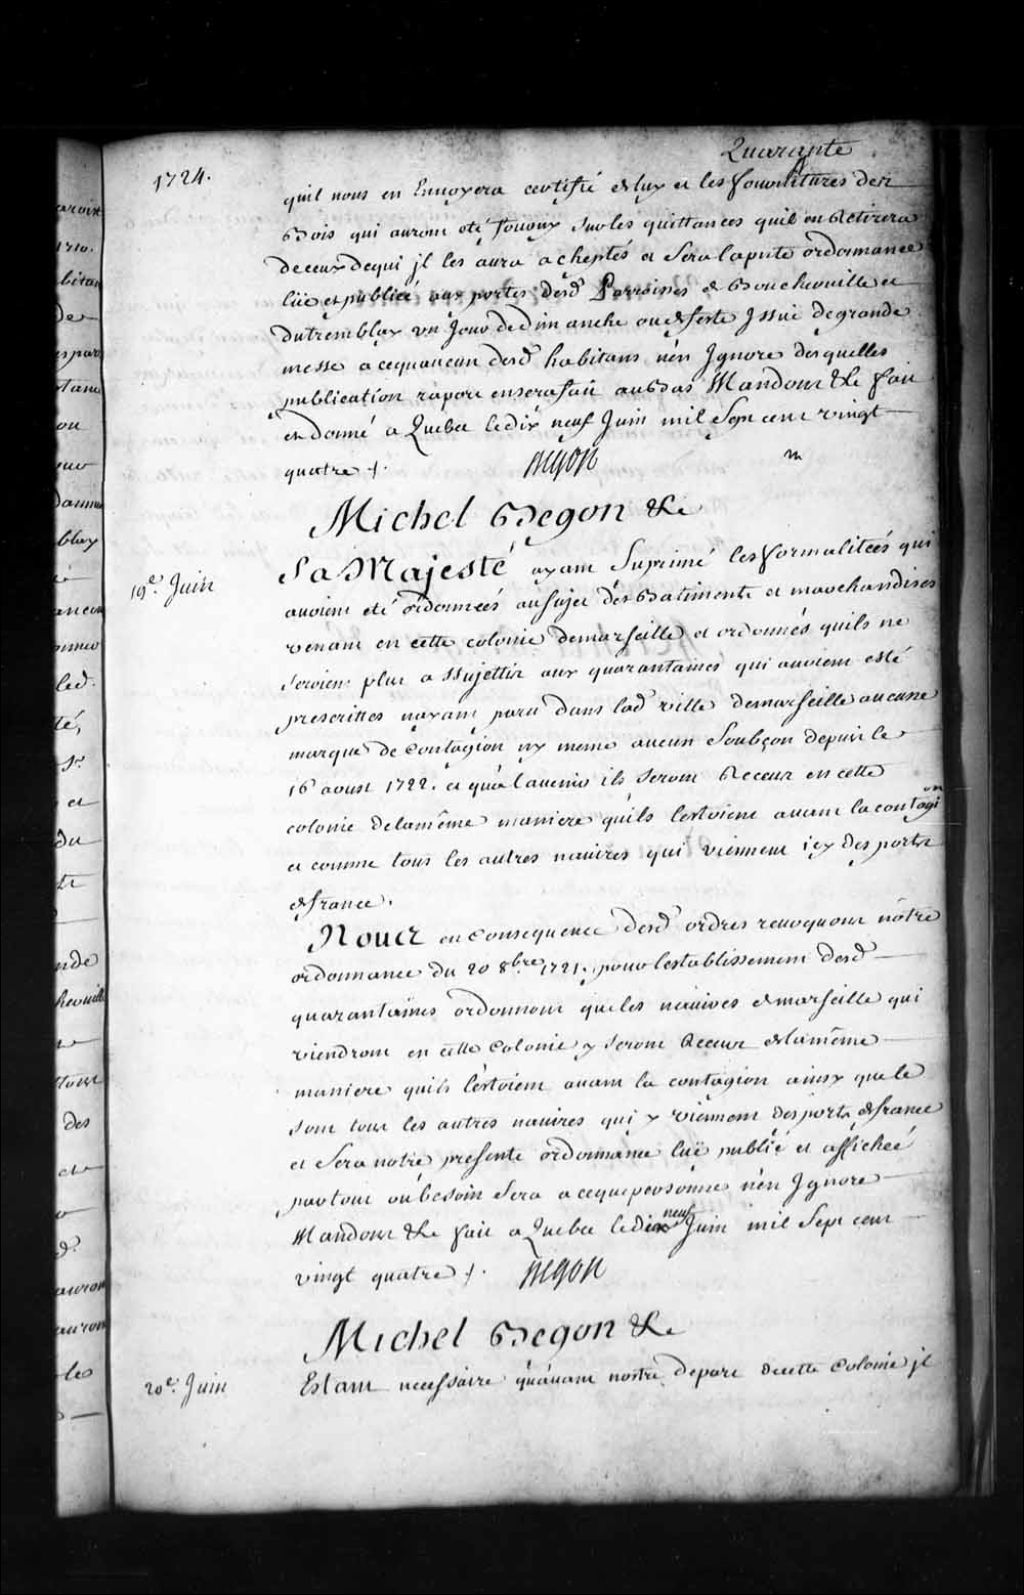 Quarante
1724.
quil nous en Envoyera certifié de luy et les fournitures des
Bois qui auront été sur les quittances quil en Retirera
de ceux de qui jl les aura acheptés et Sera la pnte ordonnance
lüe et publiée aux portes desd. Parroisses de Boucherville et
du tremblay un Jour de dimanche ou de feste Jssüe de grande
messe a ce quaucun desd. habitans nen Jgnore desquelles
publication raport en sera fait au bas Mandons &c. fait
et donné a Quebec le dix neuf Juin mil Sept cent vingt
quatre ./. Begon
Michel Begon &c.
19e. Juin
Sa Majesté ayant Suprimé les formalitées qui
avoient eté ordonnées au sujet des Batiments et marchandises
venant en cette colonie de marseille et ordonnés quils ne
seroient plus assujettis aux quarantaines qui avoient esté
prescrittes nayant paru dans lad. ville de marseille aucune
marque de Contagion ny meme aucun Soubçon depuis le
16 aoust 1722. et qua lavenir ils seront Receus en cette
colonie de la même maniere quils lestoient avant la contagion
et comme tous les autres navires qui viennent icy des ports
de france.
Nous en Consequence desd. ordres revoquons nôtre
ordonnance du 20 8bre. 1721. pour lestablissement desd.
quarantaines ordonnons que les navires de marseille qui
viendront en cette Colonie y seront Receus de la même
maniere quils lestoient avant la contagion ainsy que le
sont tous les autres navires qui y viennent des ports de france
et Sera notre presente ordonnance lüe publié et affichée
partout ou besoin Sera a ce que personne nen Jgnore
Mandons &c. fait a Quebec le dix neuf Juin mil Sept cent
vingt quatre ./. Begon
Michel Begon &c.
20e. Juin
Estant necessaire quavant nostre depart de cette Colonie jl